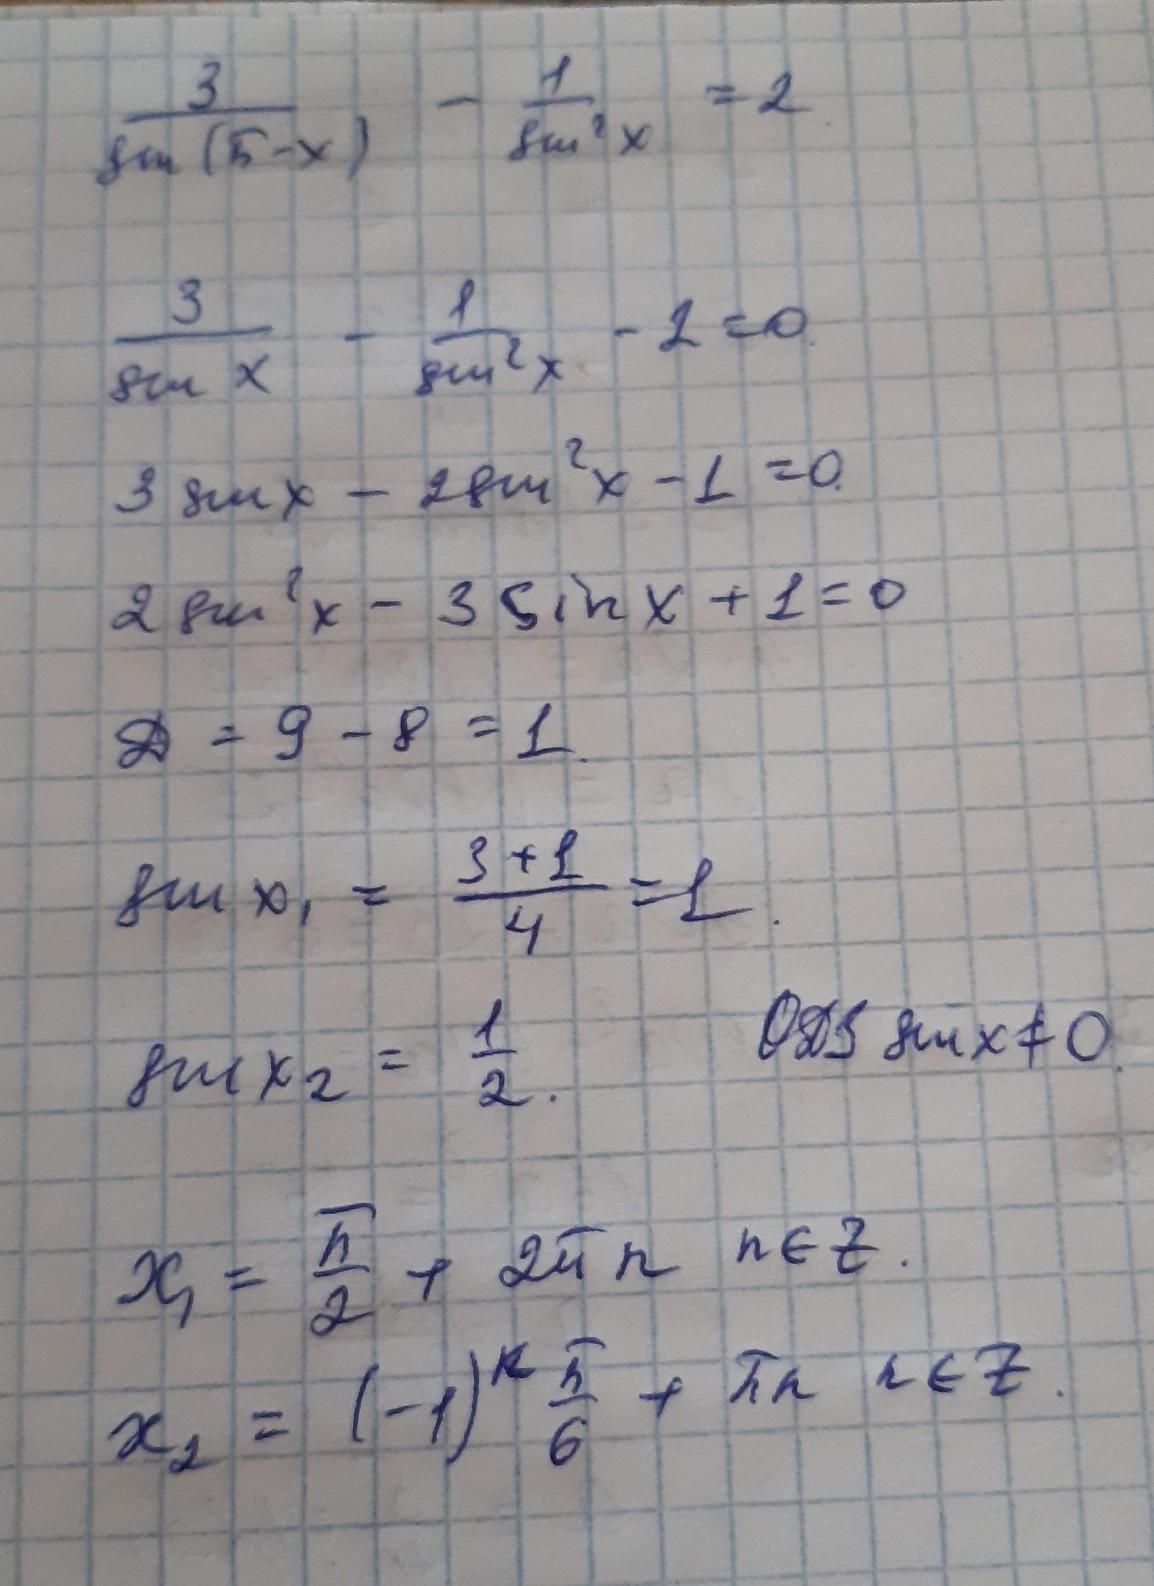 3/sin(π-x) - 1/sin²x = 2
3/sin x - 1/sin²x - 2 = 0.
3 sin x - 2 sin²x - 1 = 0.
2 sin²x - 3 sin x + 1 = 0
D = 9 - 8 = 1.
sin x₁ = (3+1)/4 = 1.
sin x₂ = 1/2. ОДЗ sin x ≠ 0.
x₁ = π/2 + 2πn n∈Z.
x₂ = (-1)ᵏ π/6 + πn n∈Z.